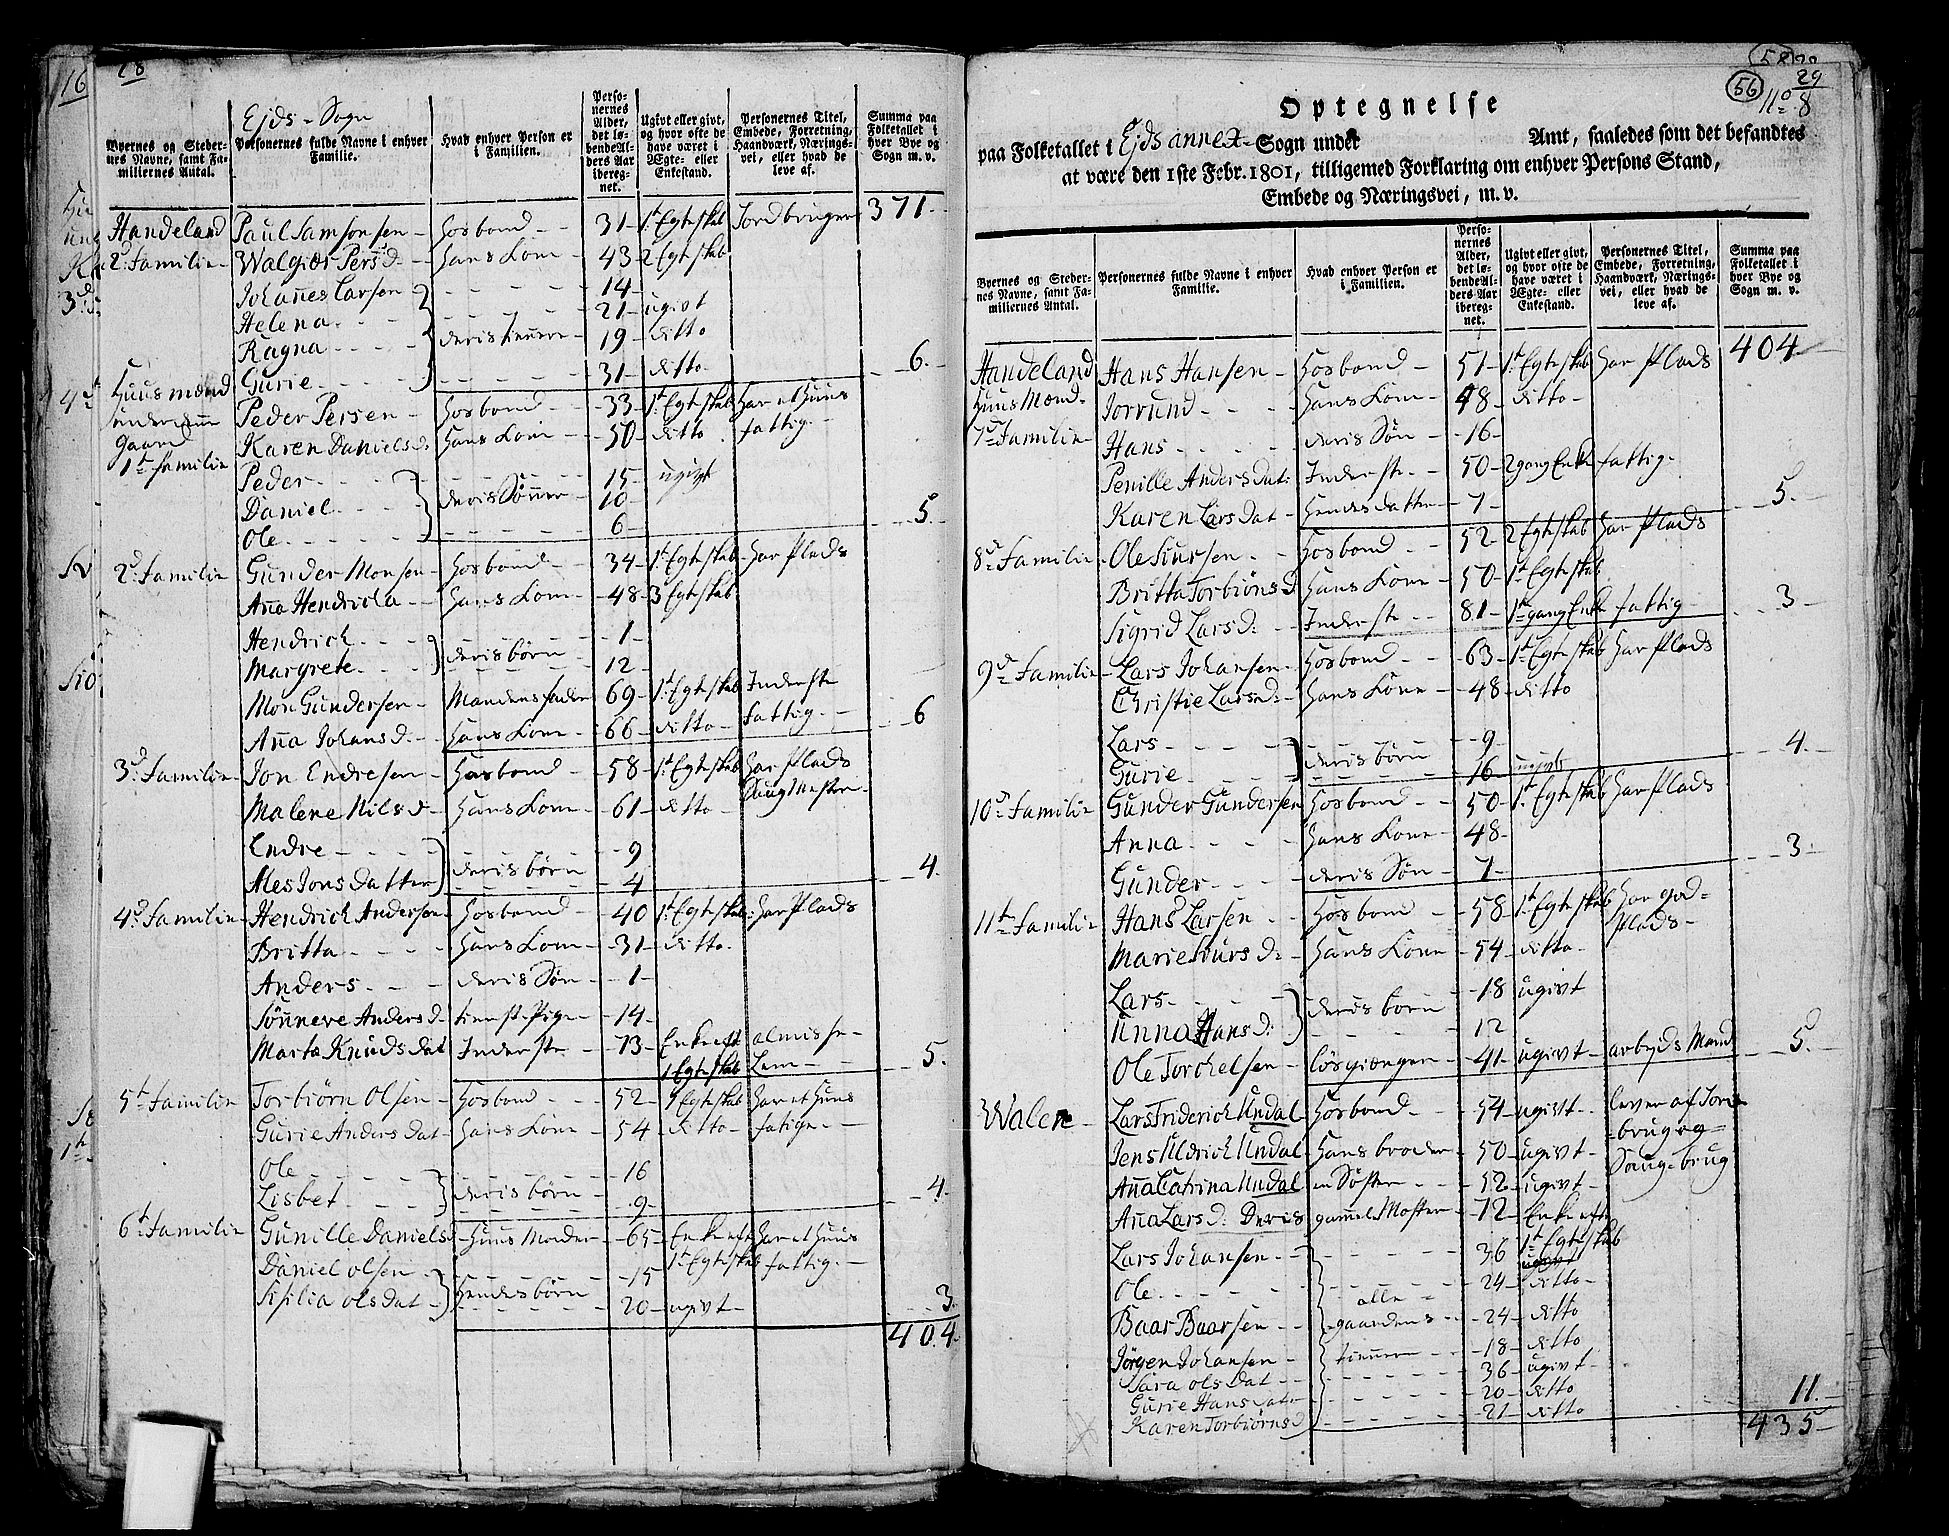 16
28
Ejds - Sogn
Byernes og Steder-nes Navne, samt Fa-miliernes Antal. Personernes fulde Navne i enhver Familie. Hvad enhver Person er i Familien. Perso-nernes Alder, det lø-bende Al-ders Aar iberegnet. Ugivt eller givt, og hvor ofte de have været i Ægte- eller Enkestand. Personernes Titel, Embede, Forretning, Haandværk, Nærings-vei, eller hvad de leve af. Summa paa Folketallet i hver Bye og Sogn m. v.
Handeland Paul Samsonsen - Hosbond - - 31 - 1te Egteskab Jordbruger 371.
2d Familie - Walgier Persd. - Hans Kone - 43 - 2 Egteskab
Johannes Larsen - - - - - 14 -
Helena - - - - - - - 21 - ugivt
Ragna - - - - deris tienere - 19 - ditto
Gurie - - - - - - - - 31 - ditto - - - 6.
Huusmænd Peder Persen - Hosbond - - 33 - 1te Egteskab Har et Huus
under
Gaard Karen Daniels d: Hans Kone - - 50 - ditto fattig -
1te familie Peder - - - - - - - 15 - ugivt
Daniel - - - deris Sønner - 10 -
Ole - - - - - - - - - 6 - - - 5.
2d Familie Gunder Monsen - Hosbond - 34 - 1te Egteskab - Har Plads
Anna Hendricha - - Hans Kone - 48 - 3 Egteskab
Hendrich - - - - - 1 -
Margrete - - - deris børn - - 12 -
Mon Gundersen - Mandens fader 69 - 1te Egteskab Inderste
Anna Johans d. - Hans Kone - 66 - ditto - fattig - - - 6
3d Familie Jon Endresen - Hosbond - 58 - 1te Egteskab Har Plads
Malene Nils d - Hans Kone - 61 - ditto - Saugmester -
Endre - - - - - - 9
Ales Jons Datter - deris børn - - 4 - - - 4.
4d Familie Hendrich Andersen Hosbond - 40 1te Egteskab Har Plads
Britta - - - Hans Kone - 31 - ditto -
Anders - - - deris Søn - - 1 -
Sønneve Anders d. tieneste Pige - 14 -
Marta Knuds dat Inderste - - 73 - Enke eft almisse
1 Egteskab Lem - - - 5.
5te Familie Torbiørn Olsen - Hosbond - - 52 - 1 Egteskab Har et Huus
Gurie Anders dat - Hans Kone - 54 - ditto - fatige -
Ole - - - - - - 16
Lisbet - - - deris børn - - 9 - - - 4.
6te Familie Gunille Daniels d - Huus Moder - 65 - Enke eft Har et Huus
Daniel olsen - - - - - 15 1te Egteskab fattig -
Sisilia ols dat - Hendes børn - 20 - ugivt - - - 3.
404.
56
29
8
Optegnelse
paa Folketallet i Ejds annex - Sogn under Amt, saaledes som det befandtes
at være den 1ste Febr. 1801, tilligemed Forklaring om enhver Persons Stand,
Embede og Næringsvei, m. v.
Byernes og Steder-nes Navne, samt Fa-miliernes Antal. Personernes fulde Navne i enhver Familie. Hvad enhver Person er i Familien. Perso-nernes Alder, det lø-bende Al-ders Aar ibereg-net. Ugivt eller givt, og hvor ofte de have været i Ægte- eller Enkestand. Personernes Titel, Embede, Forretning, Haandværk, Nærings-vei, eller hvad de leve af. Summa paa Folketallet i hver Bye og Sogn m. v.
Handeland Hans Hansen - Hosbond - 51 - 1te Egteskab Har Plads 404
Huus Mænd - Jorrund - - - Hans Kone - 48 - ditto -
7d Familie Hans - - - - deris Søn - - 16 -
Penille Anders dat: Inderste - - 50 - 2 gang Enke fattig -
Karen Lars dat - Hendes datter - 7 - - - 5.
8d Familie - Ole Siursen - - Hosbond - - 52 - 2 Egteskab Har Plads
Britta Torbiøns d Hans Kone - 50 - 1te Egteskab
Sigrid Lars d: - - Inderste - - 81 - 1te gang Enke fattig - - 3
9d Familie - Lars Johansen - Hosbond - - 63 - 1te Egteskab Har Plads
Christie Lars d: - Hans Kone - 48 - ditto
Lars - - - - - - 9 -
Gurie - - - - deris børn - 16 - ugivt - - 4.
10d Familie Gunder Gundersen Hosbond - - 50 - 1te Egteskab Har Plads
Anna - - - - Hans Kone - 48 -
Gunder - - - deris Søn - - 7 - - - 3.
11te Familie Hans Larsen - - Hosbond - 58 - 1te Egteskab Har god -
Plads -
Marie Siurs d: - Hans Kone - 54 - ditto -
Lars - - - - - 18 ugivt
Anna Hans d: deris born - - 12
Ole Torchelsen - løsgiænger - 41 - ugivt - arbyds Mand - 5.
Walen - Lars Friderich Undal - Hosbond - - 54 - ugivt - lever af Jord
- brug og -
Jens Uldrich Undal Hans broder - 50 - ugivt - Saug - brug
Anna Catrina Undal en Søster - - 52 - ugivt -
Anna Lars d: Deris gammel Moster - 72 - Enke eft
1te Egteskab
Lars Johansen - - - - - 36 ugivt
Ole - - - - - - 24 - ditto -
Baar Baarsen - - alle gaardens - - 24 - ditto
Jørgen Johansen - tienere - - 18 - ditto
Sara ols Dat - - - - - 36 - ugivt -
Gurie Hans datr - - - 20 - ditto 11.
Karen Torbiørns d - - - 21 - ditto 435 -